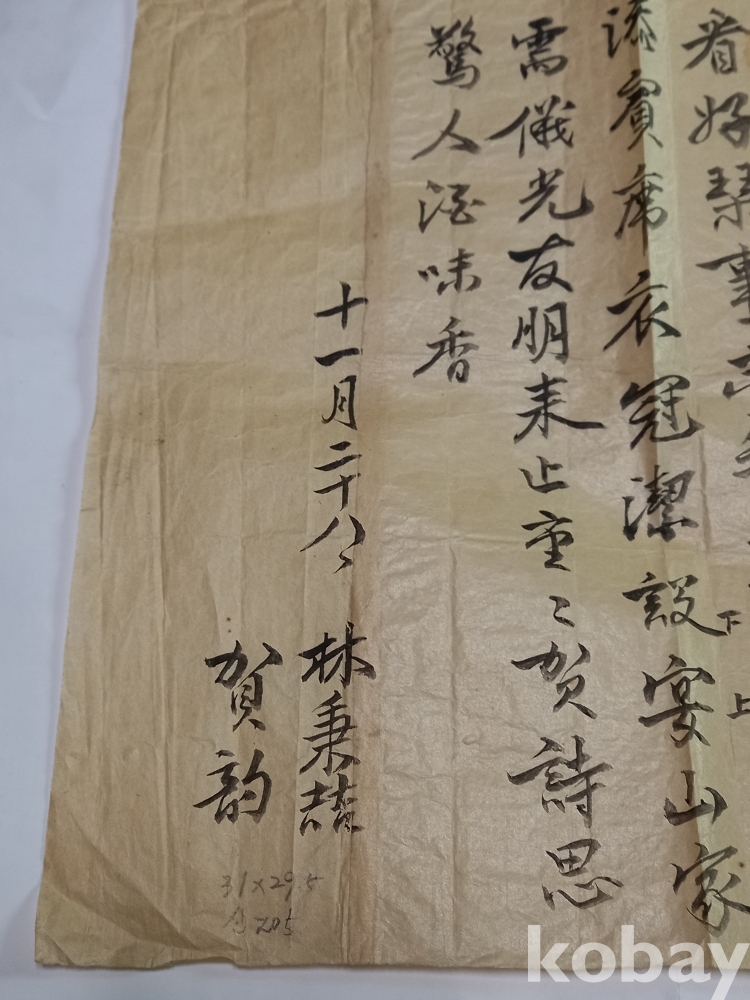 看好琴事
添賓席衣冠潔設宴山家
下
上
需儀光友朋来止重〻賀詩思
驚人酒味香
十一月二十八
林秉喆
賀韵
31×29.5
kobay